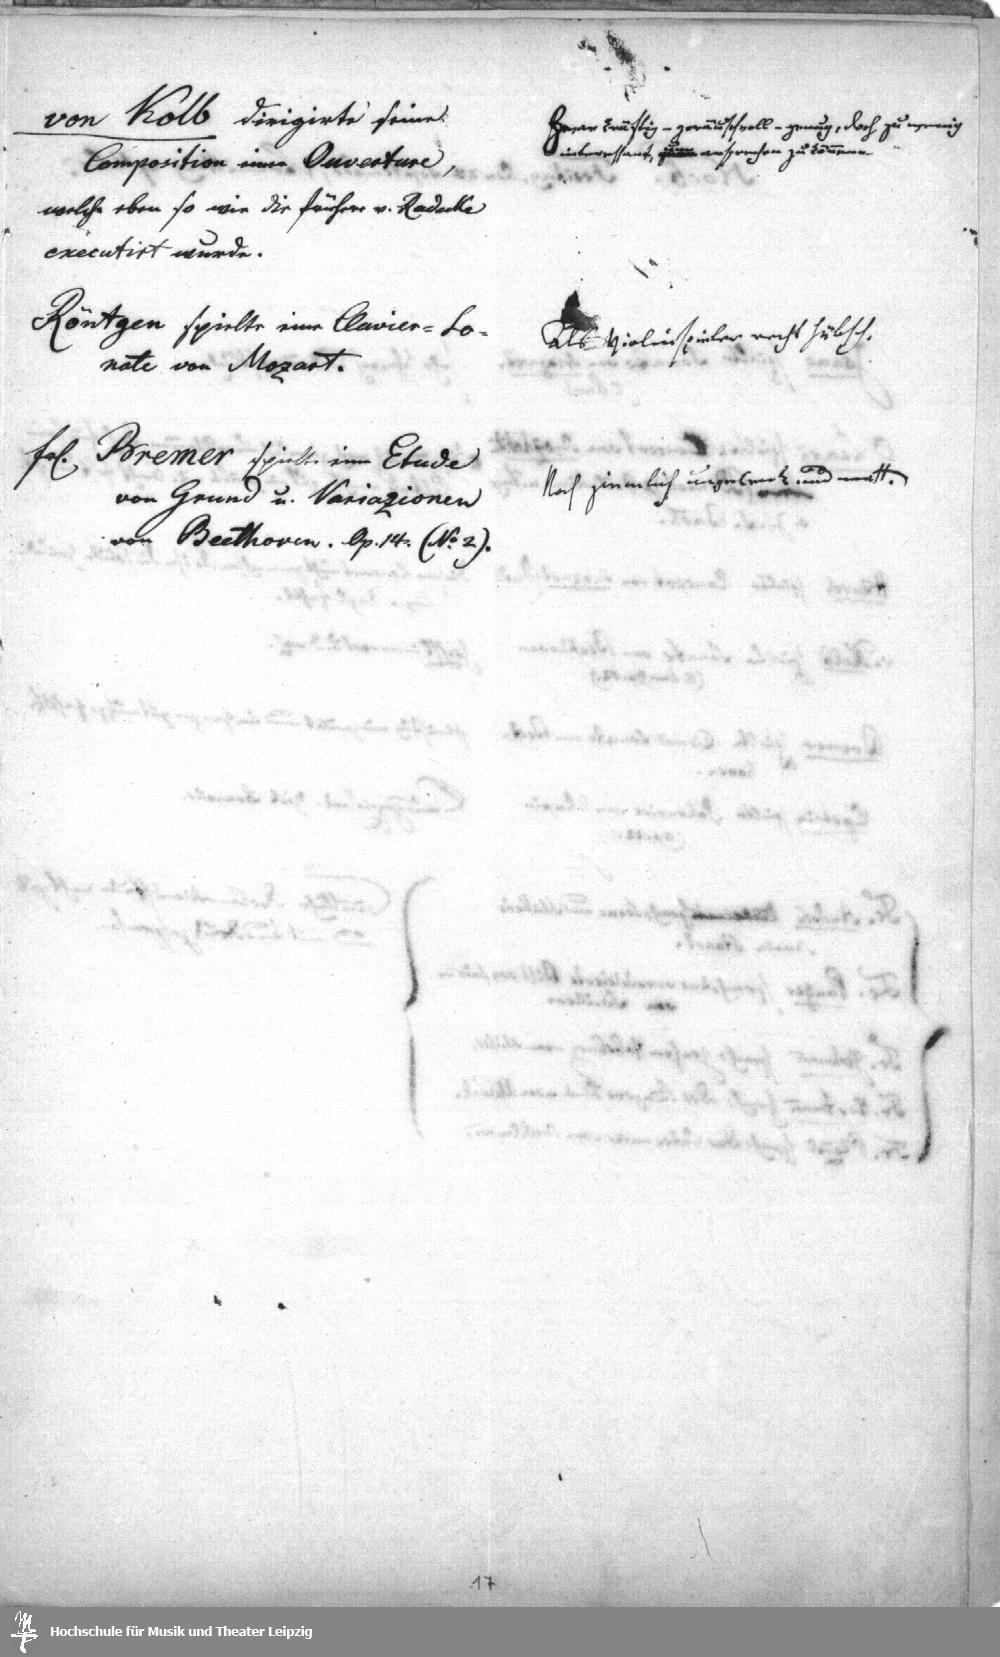 von Kolb dirigirte seine
Composition einer Ouverture,
welche eben so wie die frühere v. Radecke
executirt wurde.
Zwar kräftig – geräuschvoll – genug, doch zu wenig
interessant, um ansprechen zu können.
Röntgen spielte eine Clavier= So-
nate von Mozart.
Als Violinspieler recht hübsch.
Frl. Bremer spielte eine Etude
von Grund u. Variazionen
von Beethoven. Op. 14. (No 2).
Noch ziemlich und matt.
17
Hochschule für Musik und Theater Leipzig